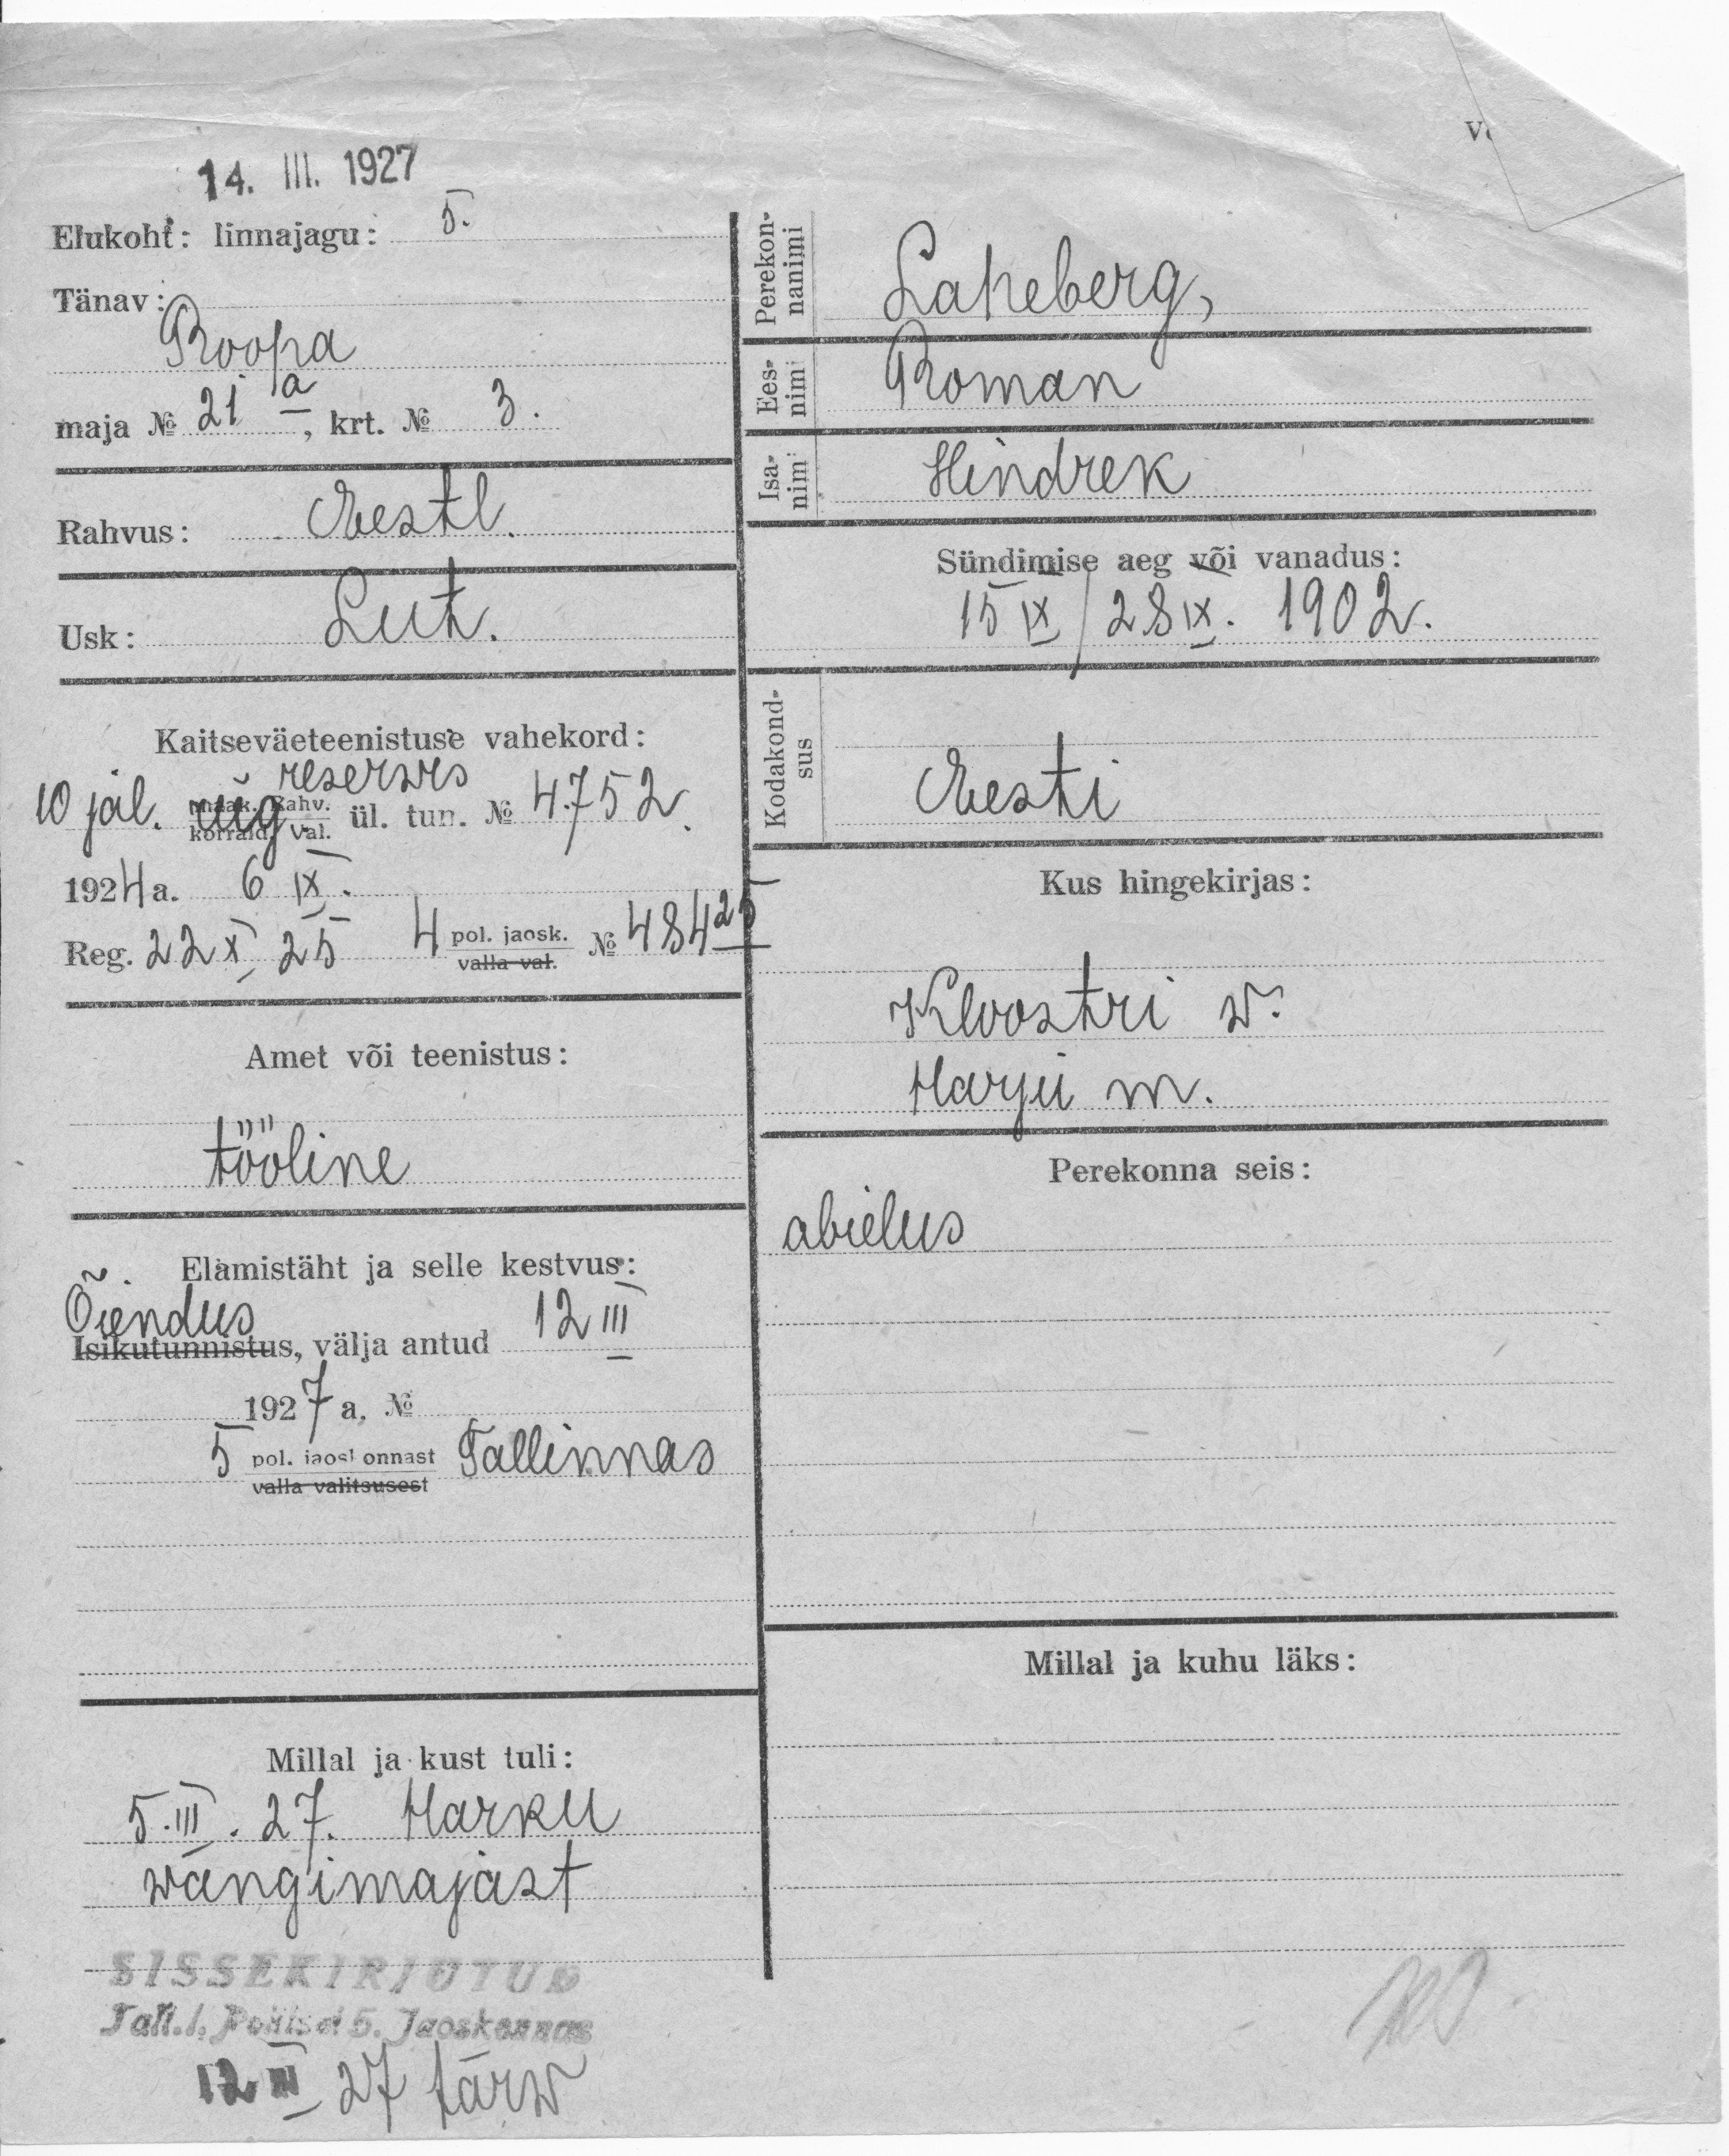 14. III. 1927
Elukoht: linnajagu: 5.
Tänav:
Roopa
maja № 21 a, krt. № 3.
Rahvus: Eestl.
Usk: Lut.
Kaitseväeteenistuse vahekord:
reservis
10 jal. rüg. ül. tun. № 4752.
1924 a. 6 IX.
Reg. 22 X 25 4 pol. jaosk. № 484 25
valla val.
Amet või teenistus:
tööline
Elamistäht ja selle kestvus:
Õiendus
Isikutunnistus, välja antud 12 III
1927 a. №
5 pol. jaoskonnast Tallinnas
valla valitsusest
Millal ja kust tuli:
5.III.27. Harku
wangimajast
SISSEKIRJUTUD
Tall. l. Politsei 5. Jaoskonnas
12 III 27
Perekon-
nanimi
Laheberg,
Ees-
nimi
Roman
Isa-
nimi
Hindrek
Sündimise aeg või vanadus:
15 IX / 28 IX. 1902.
Kodakond-
sus
Eesti
Kus hingekirjas:
Kloostri w.
Harju m.
Perekonna seis:
abielus
Millal ja kuhu läks: